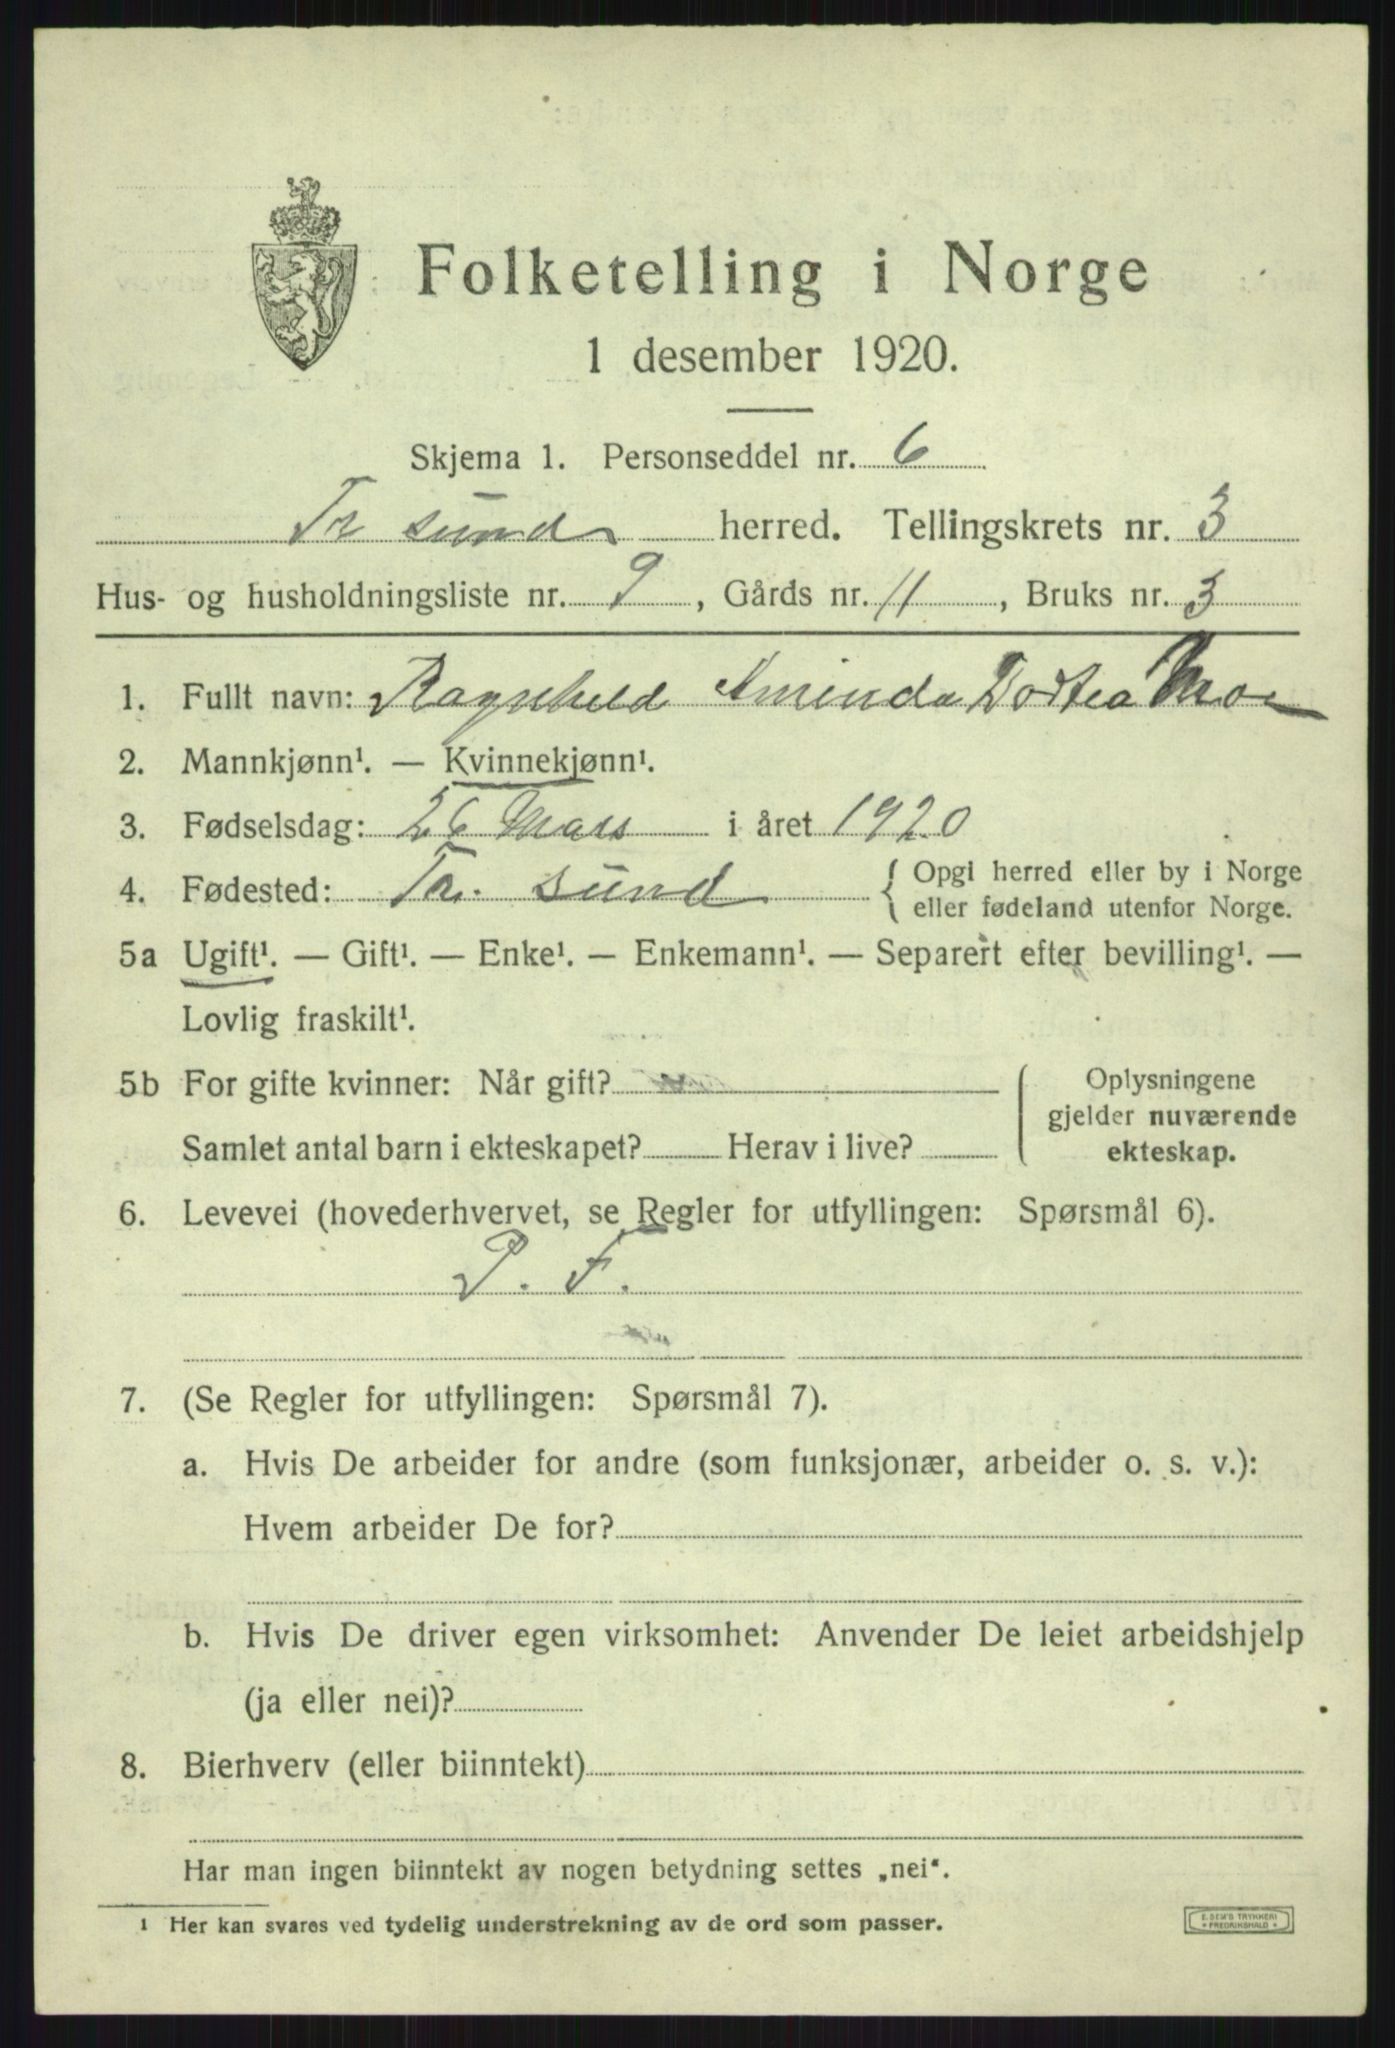 Folketelling i Norge
1 desember 1920.
Skjema 1. Personseddel nr. 6
Tr sund herred. Tellingskrets nr. 3
Hus- og husholdningsliste nr. 9, Gårds nr. 11, Bruks nr. 3
1. Fullt navn: Ragnhild Aminda Dortea Moe
2. Mannkjønn¹. — Kvinnekjønn¹.
3. Fødselsdag: 26 Mars i året 1920
4. Fødested: Tr. sund { Opgi herred eller by i Norge
eller fødeland utenfor Norge.
5a Ugift¹. — Gift¹. — Enke¹. — Enkemann¹. — Separert efter bevilling¹. —
Lovlig fraskilt¹.
5b For gifte kvinner: Når gift?
Samlet antal barn i ekteskapet? Herav i live?
Oplysningene
gjelder nuværende
ekteskap.
6. Levevei (hovederhvervet, se Regler for utfyllingen: Spørsmål 6).
P. F.
7. (Se Regler for utfyllingen: Spørsmål 7).
a. Hvis De arbeider for andre (som funksjonær, arbeider o. s. v.):
Hvem arbeider De for?
b. Hvis De driver egen virksomhet: Anvender De leiet arbeidshjelp
(ja eller nei)?
8. Bierhverv (eller biinntekt)
Har man ingen biinntekt av nogen betydning settes „nei“.
¹ Her kan svares ved tydelig understrekning av de ord som passer.
E. SEM'S TRYKKERI
* FREDRIKSHALD *